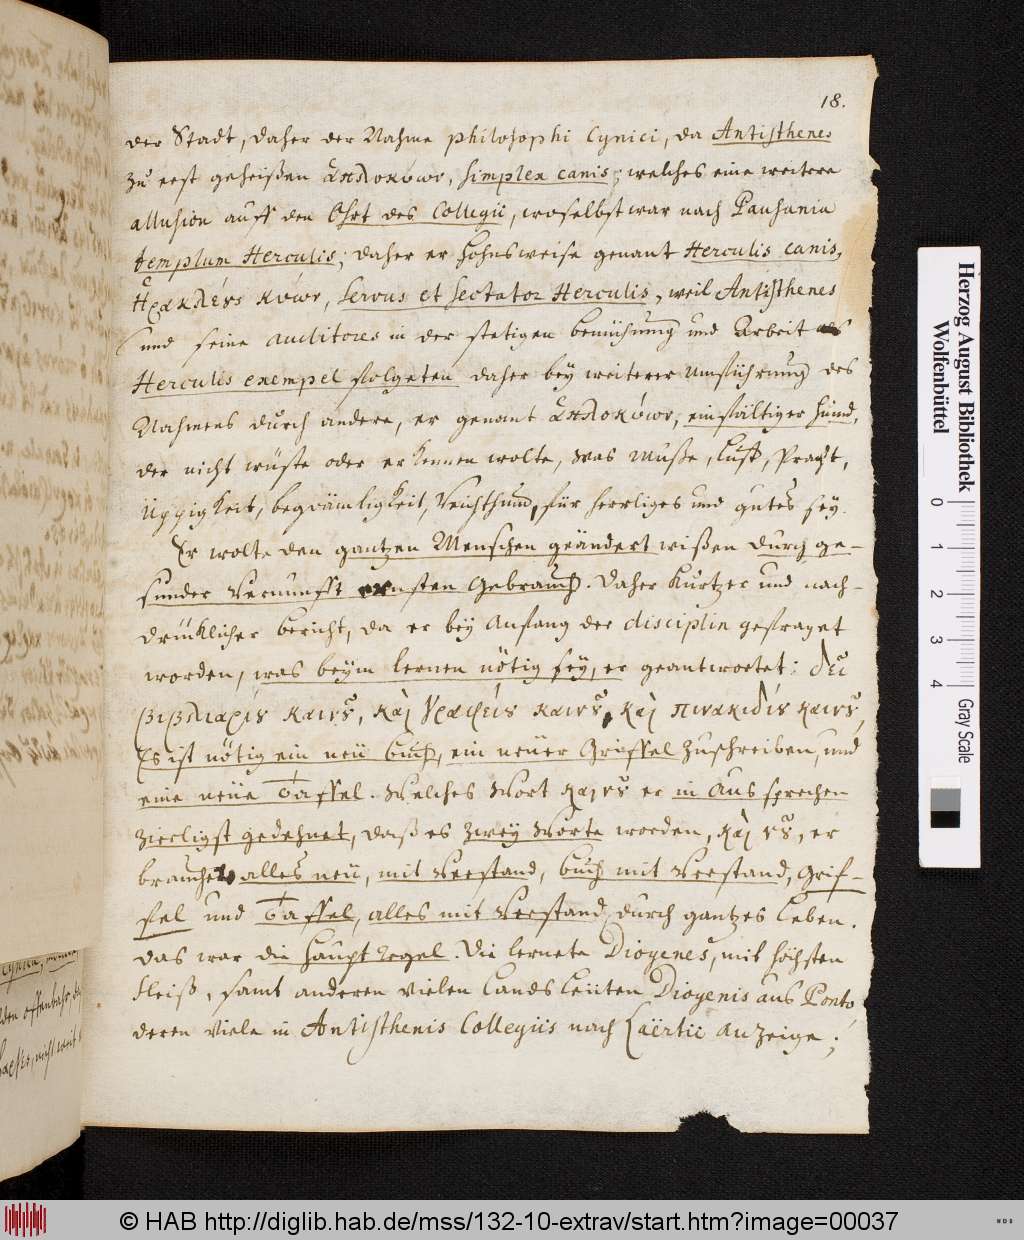 18.
der Stadt, daher der Nahme philosophi Cynici, da Antisthenes
zu erst geheißen Ἁπλοκύων, simplex canis; welches eine weitere
allusion auff den Ohrt des Collegii, woselbst war nach Pausania
templum Herculis; daher er hohnsweise genant Herculis canis,
Ἡρακλέȣς κύων, servus et sectator Herculis, weil Antisthenes
und seine auditores in der stetigen bemühung und Arbeit
Herculis exempel folgeten daher bey weiterer umführung des
Nahmens durch andere, er genant Ἁπλοκύων, einfältiger hund,
der nicht wüste oder erkennen wolte, was Muße, Lust, Pracht,
Üppigkeit, beqvämligkeit, Reichthum, für herrliges und gutes sey.
Er wolte den gantzen Menschen geändert wißen durch ge-
sunder Vernunfft ernsten Gebrauch. Daher kurtzer und nach-
drücklicher bericht, da er bey Anfang der disciplin gefraget
worden, was beym lernen nötig sey, er geantwortet: δεῖ
βιβλιαρίȣ καινȣ, καὶ γραφείȣ καινȣ, καὶ πινακιδίȣ καινȣ,
Es ist nötig ein neü buch, ein neüer Griffel zuschreiben, und
eine neüe Taffel. Welches Wort καινȣ er in Aussprechen
zierligst gedehnet, daß es zwey Worte worden, καὶ νȣ, er
brauche alles neü, mit Verstand, buch mit Verstand, Grif-
fel und Taffel, alles mit Verstand durch gantzes Leben.
Das war die Haupt regel. Die lernete Diogenes, mit höchsten
fleiß, samt anderen vielen Landsleüten Diogenis aus Ponto,
deren viele in Antisthenis Collegiis nach Laërtii anzeige;
Herzog August Bibliothek
Wolfenbüttel
0 1 2 3 4 Gray Scale
© HAB http://diglib.hab.de/mss/132-10-extrav/start.htm?image=00037